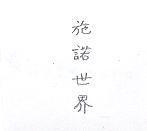 施諾世界